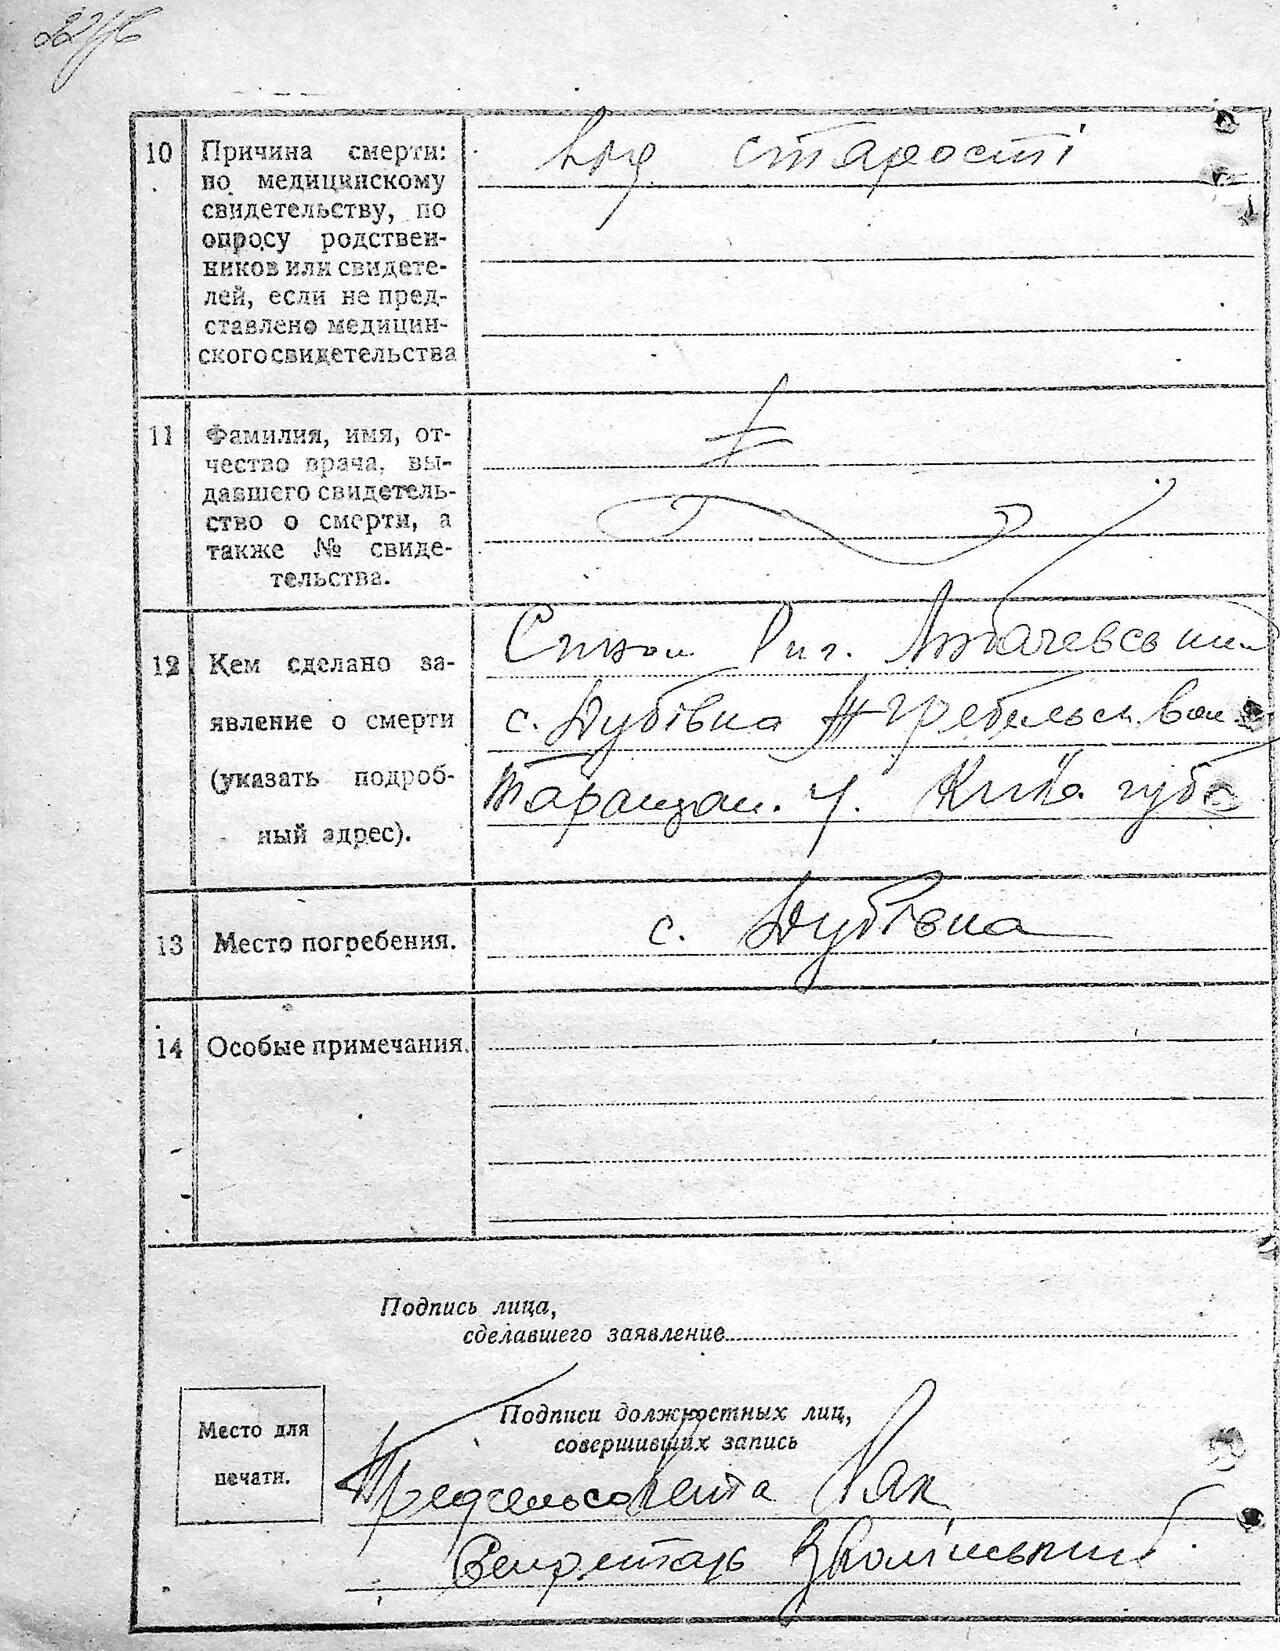 10 Причина смерти:
по медицинскому
свидетельству, по
опросу родствен-
ников или свидете-
лей, если не пред-
ставлено медицин-
ского свидетельства
від старості
11 Фамилия, имя, от-
чество врача, вы-
давшего свидетель-
ство о смерти, а
также № свиде-
тельства.
12 Кем сделано за-
явление о смерти
(указать подроб-
ный адрес).
Сином
с. Дубівка
Таращан. у. Київ губ
13 Место погребения.
с. Дубівка
14 Особые примечания.
Подпись лица,
сделавшего заявление
Место для
печати.
Подписи должностных лиц,
совершивших запись
Предсельсовета Рак
Секретарь